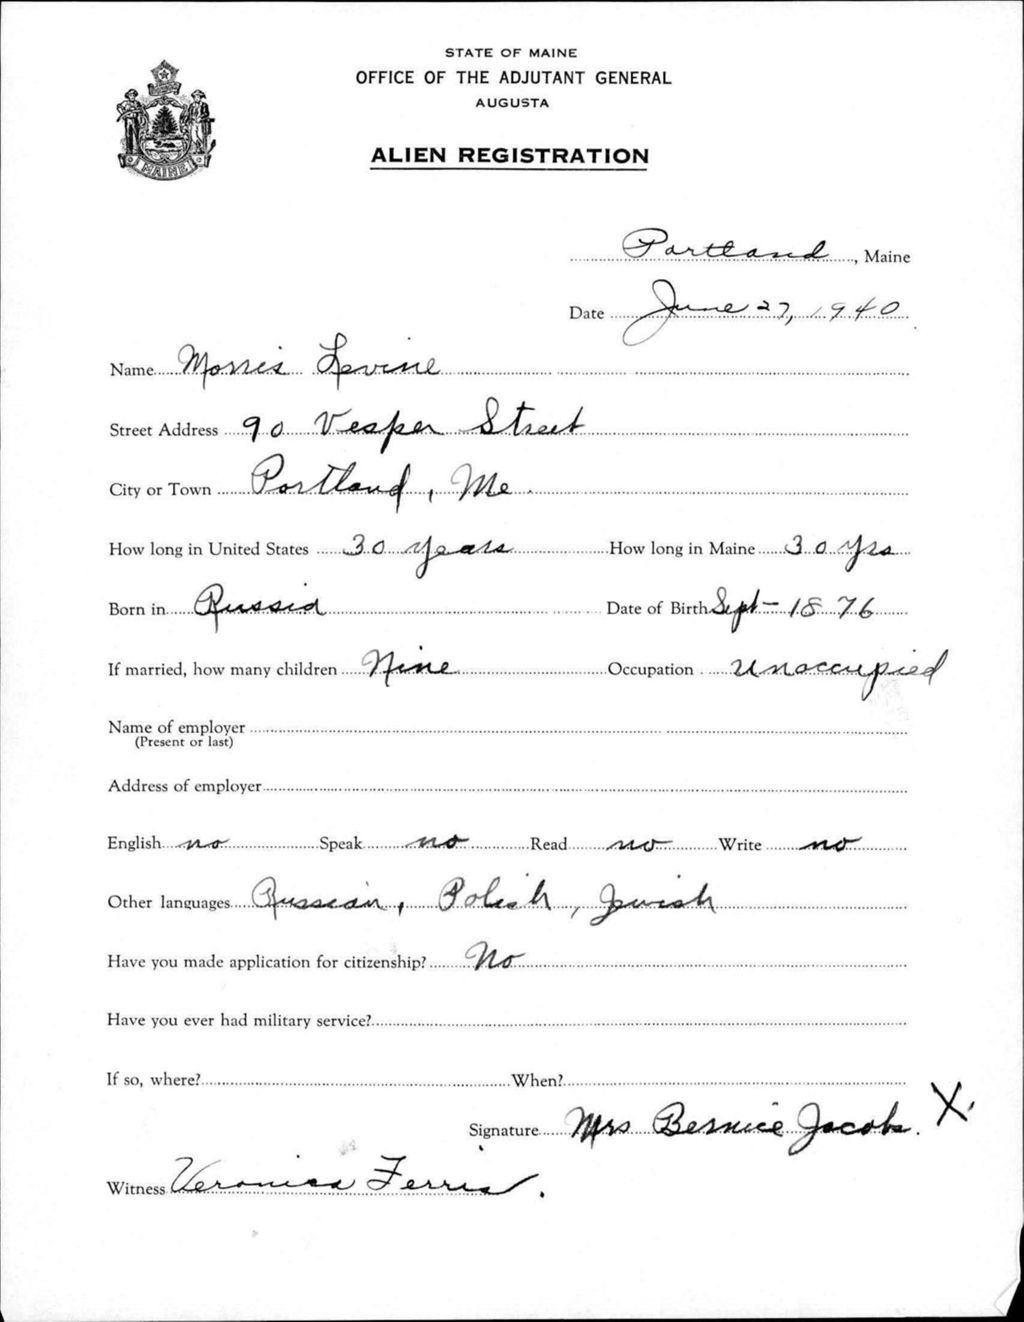 STATE OF MAINE
OFFICE OF THE ADJUTANT GENERAL
AUGUSTA
ALIEN REGISTRATION
MAINE
Portland, Maine
Date June 27, 1940
Name Morris Levine
Street Address 90 Vesper Street
City or Town Portland, Me.
How long in United States 30 years How long in Maine 30 yrs
Born in Russia Date of Birth Sept - 1876
If married, how many children Nine Occupation Unoccupied
Name of employer
(Present or last)
Address of employer
English no Speak no Read no Write no
Other languages Russian, Polish, Jewish
Have you made application for citizenship? No
Have you ever had military service?
If so, where? When?
Signature Mrs Bernice Jacobs. X
Witness Veronica Ferris.